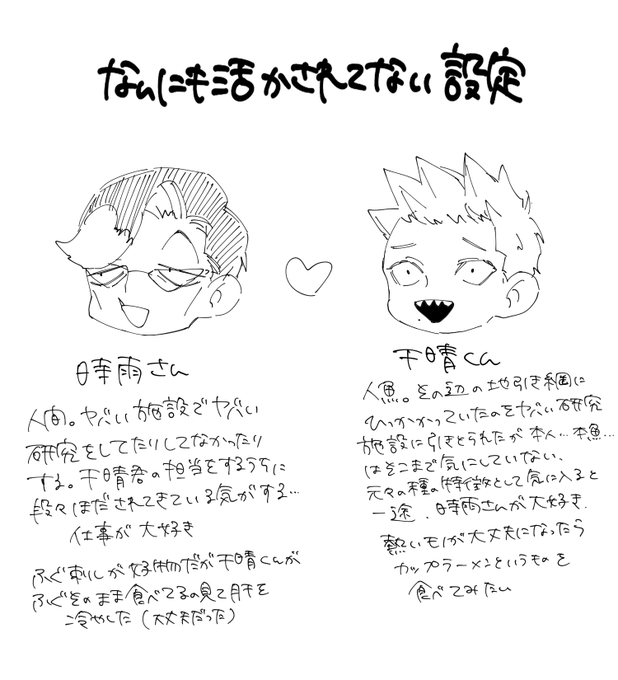 なんにも活かされてない設定
時雨さん
人間。ヤバい施設でヤバい
研究をしてたりしてなかったり
する。干晴君の担当をするうちに
段々ほだされてきている気がする…
仕事が大好き
ふぐ刺しが好物だが干晴くんが
ふぐそのまま食べてるの見て肝を
冷やした(大丈夫だった)
干晴くん
人魚。その辺の地引き網に
ひっかかっていたのをヤバい研究
施設に引きとられたが本人…本魚…
はそこまで気にしていない。
元々の種の特徴として気に入ると
一途。時雨さんが大好き.
熱いモノが大丈夫になったら
カップラーメンというものを
食べてみたい